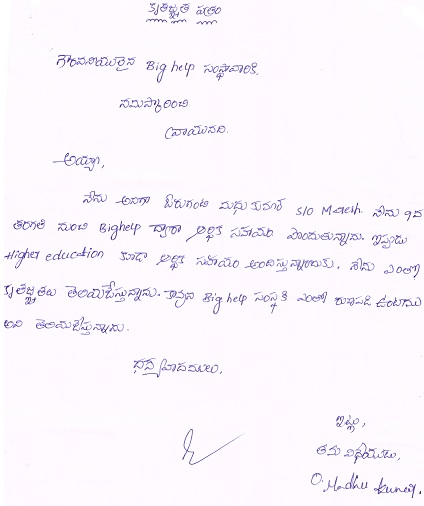 కృతజ్ఞత పత్రం
గౌరవనీయులైన Big help సంస్థవారికి,
నమస్కరించి
వ్రాయునది.
అయ్యా,
నేను అనగా ఓరుగంటి మధు కుమార్ S/O Matesh. నేను 9వ
తరగతి నుంచి Bighelp ద్వారా ఆర్థిక సహాయం పొందుతున్నాను. ఇప్పుడు
Higher education కూడా ఆర్థిక సహాయం అందిస్తున్నారు. నేను ఎంతో
కృతజ్ఞతలు తెలియజేస్తున్నాను. కావున Big help సంస్థకి ఎంతో రుణపడి ఉంటాను
అని తెలియజేస్తున్నాను.
ధన్యవాదములు,
ఇట్లు,
తమ విధేయుడు,
O. Madhu kumar.